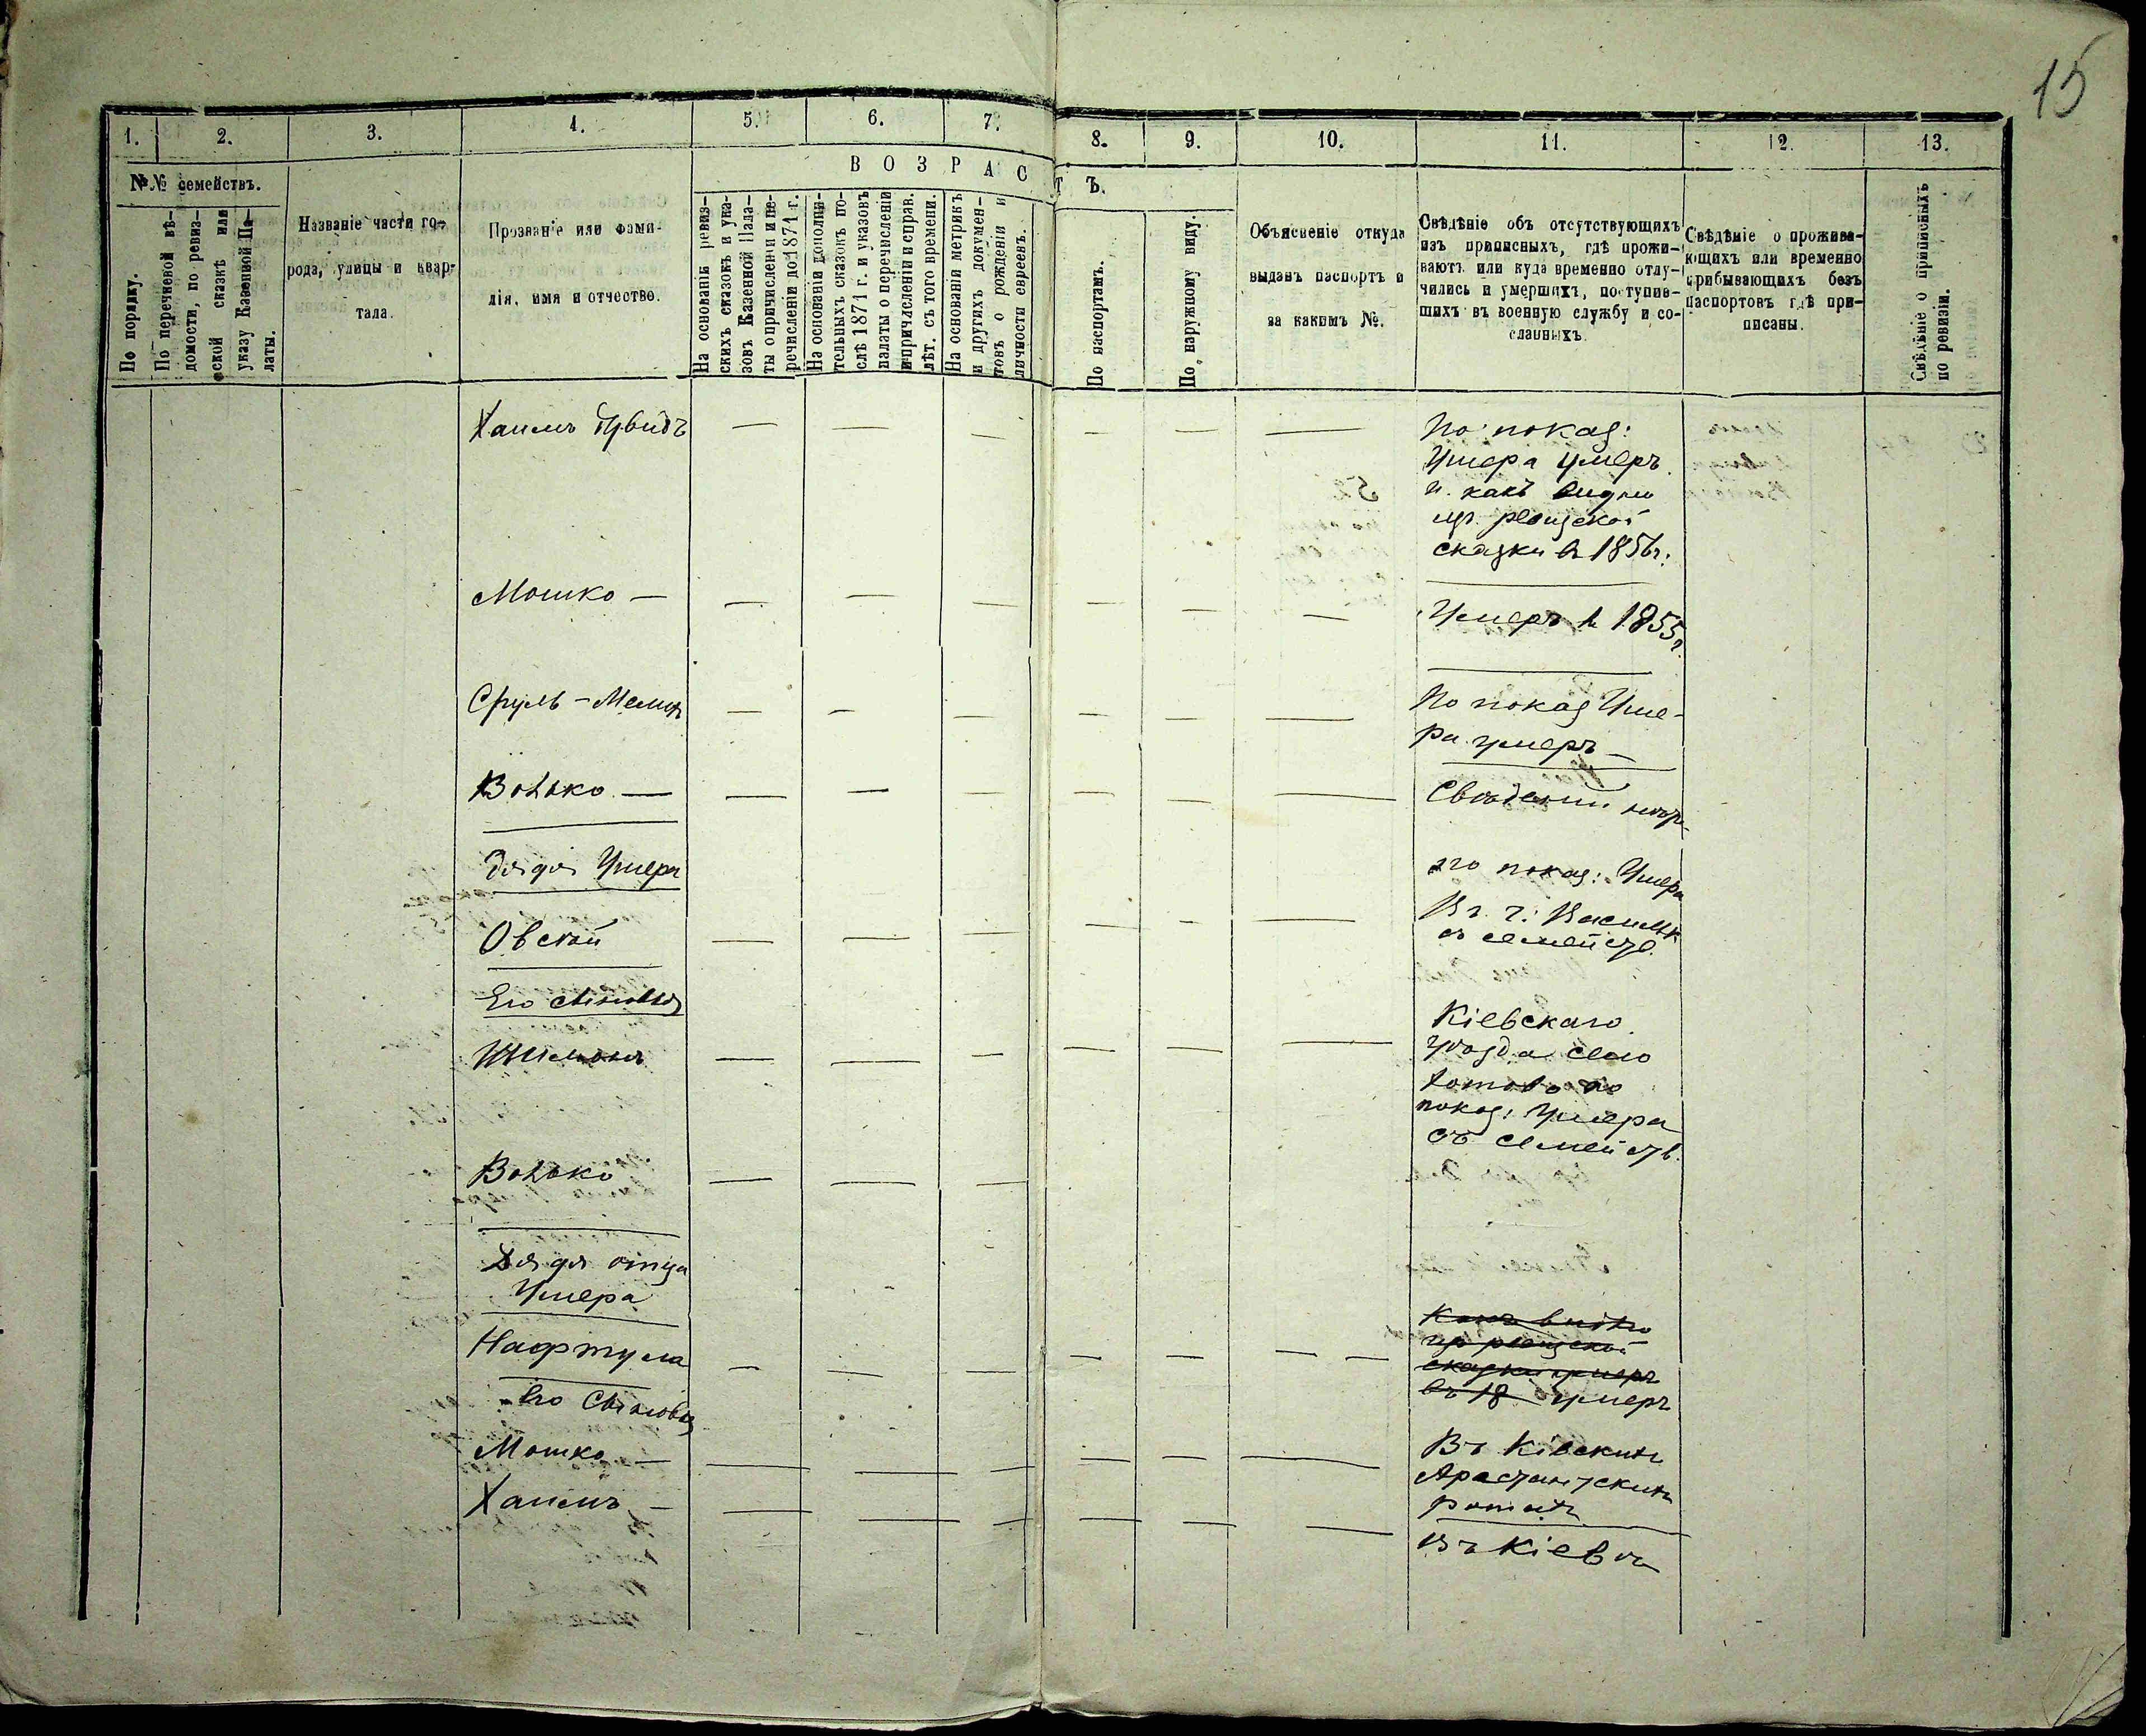 15
1.
2.
3.
4.
5.
6.
7.
8.
9.
10.
11.
12.
13.
№№ семействъ.
ВОЗРАСТЪ.
По порядку.
По перечневой вѣ-
домости, по ревиз-
ской сказкѣ или
указу Казенной Па-
латы.
Названіе части го-
рода, улицы и квар-
тала.
Прозваніе или фами-
лія, имя и отчество.
На основаніи ревиз-
скихъ сказокъ и ука-
зовъ Казенной Пала-
ты о причисленіи и пе-
речисленіи до 1871 г.
На основаніи дополни-
тельныхъ сказокъ по-
слѣ 1871 г. и указовъ
палаты о перечисленіи
и причисленіи и справ.
лѣт. съ того времени.
На основаніи метрикъ
и другихъ докумен-
товъ о рожденіи и
личности евреевъ.
По паспортамъ.
По наружному виду.
Объясненіе откуда
выданъ паспортъ и
за какимъ №.
Свѣдѣніе объ отсутствующихъ
изъ приписныхъ, гдѣ прожи-
ваютъ или куда временно отлу-
чились и умершихъ, поступив-
шихъ въ военную службу и со-
сланныхъ.
Свѣдѣніе о прожива-
ющихъ или временно
прибывающихъ безъ
паспортовъ гдѣ при-
писаны.
Свѣдѣніе о приписныхъ
по ревизіи.
Хаимъ Дувидъ — — — — — — По показ:
Умера умеръ
и какъ видно
изъ ревизской
сказки въ 1856 г.
Мошко — — — — — — — Умеръ въ 1855 г.
Сруль-Мемир — — — — — — По показ Уме-
ра умеръ —
Волько — — — — — — — Свѣденій нѣтъ
Дядя Умера по показ: Умера
Овсѣй — — — — — — Въ г. Васильк
съ семейств.
Его сыновья
Шимонъ — — — — — — Кіевскаго
уѣзда село
Хотово по
показ: Умера
съ семейств.
Волько — — —
Дядя отца
Умера
Нафтула — — — — — — Какъ видно
изъ ревизской
сказки умеръ
въ 18 умеръ
Его Сыновья
Мошко — — — — — — — Въ Кіевскихъ
Арестантскихъ
ротахъ
Хаимъ — — — — — — — Въ Кіевѣ